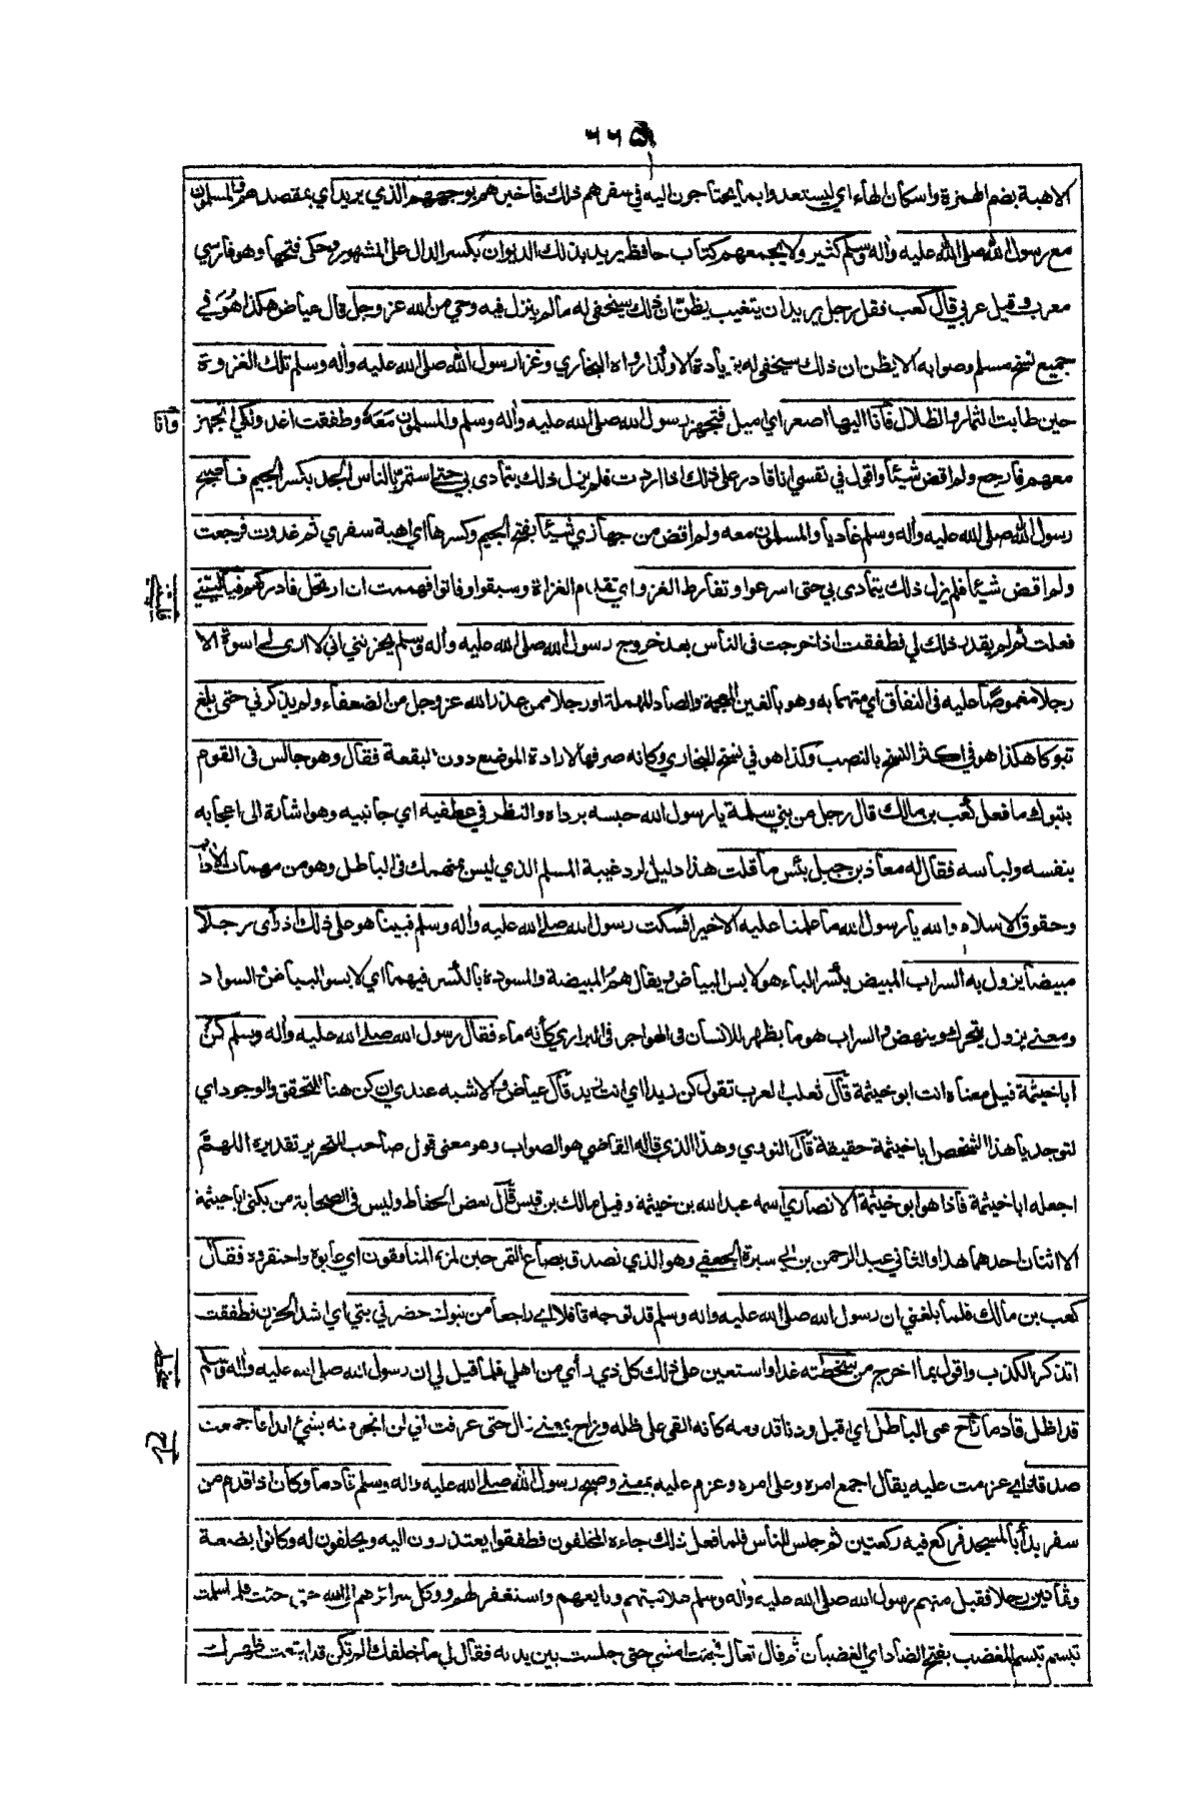 ٦٦٥
الاهبة بضم الهمزة واسكان الهاء اي ليستعدوا بما يحتاجون اليه في سفرهم ذلك فأخبرهم بوجههم الذي يريد اي بمقصدهم والمسلمون
مع رسول الله صلى الله عليه وأله وسلم كثير ولا يجمعهم كتاب حافظ يريد بذلك الديوان بكسر الدال على المشهور وحكى فتحها وهو فارسي
معرب وقيل عربي قال كعب فقل رجل يريد ان يتغيب يظن ان ذلك سيخفى له مالم ينزل فيه وحي من الله عز وجل قال عياض هكذا هو في
جميع نسخ مسلم وصوابه الا يظن ان ذلك سيخفى له بزيادة الا وكذا رواه البخاري وغزا رسول الله صلى الله عليه وأله وسلم تلك الغزوة
حين طابت الثمار والظلال فأنا اليها اصعر اي اميل فتجهز رسول الله صلى الله عليه وأله وسلم والمسلمون معه وطفقت اغدو لكي اتجهز
وأنا
معهم فأرجع ولم اقض شيئا واقول في نفسي انا قادر على ذلك اذا اردت فلم يزل ذلك يتمادى بي حتى استمر بالناس الجد بكسر الجيم فأصبح
رسول الله صلى الله عليه وأله وسلم غاديا والمسلمون معه ولم اقض من جهازي شيئا بفتح الجيم وكسرها اي اهبة سفري ثم غدوت فرجعت
ولم اقض شيئا فلم يزل ذلك يتمادى بي حتى اسرعوا وتفارط الغزو اي تقدم الغزاة وسبقوا وفاتوا فهممت ان ارتحل فأدركهم فياليتني
فعلت ثم لم يقدر ذلك لي فطفقت اذا خرجت في الناس بعد خروج رسول الله صلى الله عليه وأله وسلم يحزنني اني لا ارى لي اسوة الا
رجلا مغموصا عليه في النفاق اي متهما به وهو بالغين المعجمة والصاد المهملة او رجلا ممن عذر الله عز وجل من الضعفاء ولم يذكرني حتى بلغ
تبوكا هكذا هو في اكثر النسخ بالنصب وكذا هو في نسخ البخاري وكانه صرفها لارادة الموضع دون البقعة فقال وهو جالس في القوم
بتبوك ما فعل كعب بن مالك قال رجل من بني سلمة يا رسول الله حبسه برداه والنظر في عطفيه اي جانبيه وهو اشارة الى اعجابه
بنفسه ولباسه فقال له معاذ بن جبل بئس ما قلت هذا دليل لرد غيبة المسلم الذي ليس بمنهمك في الباطل وهو من مهمات الأداب
وحقوق الاسلام والله يا رسول الله ما علمنا عليه الا خيرا فسكت رسول الله صلى الله عليه وأله وسلم فبينا هو على ذلك اذ رأى رجلا
مبيضا يزول به السراب المبيض بكسر الياء هو لابس البياض ويقال هم المبيضة والمسودة بالكسر فيهما اي لابسو البياض والسواد
ومعنى يزول يتحرك وينهض والسراب هو ما يظهر للانسان في الهواجر في البراري كأنه ماء فقال رسول الله صلى الله عليه وأله وسلم كن
ابا خيثمة قيل معناه انت ابو خيثمة قال ثعلب العرب تقول كن زيدا اي انت زيد قال عياض والاشبه عندي ان كن هنا للتحقق والوجود اي
لتوجد يا هذا الشخص ابا خيثمة حقيقة قال النووي وهذا الذي قاله القاضي هو الصواب وهو معنى قول صاحب التحرير تقديره اللهم
اجعله ابا خيثمة فأذا هو ابو خيثمة الانصاري اسمه عبد الله بن خيثمة وقيل مالك بن قيس قال بعض الحفاظ وليس في الصحابة من يكنى ابا خيثمة
الا اثنان احدهما هذا والثاني عبد الرحمن بن ابي سبرة الجعفي وهو الذي تصدق بصاع التمر حين لمزه المنافقون اي عابوه واحتقروه فقال
كعب بن مالك فلما بلغني ان رسول الله صلى الله عليه واله وسلم قد توجه قافلا اي راجعا من تبوك حضرني بثي اي اشد الحزن فطفقت
اتذكر الكذب واقول بما اخرج من سخطته غدا واستعين على ذلك كل ذي رأي من اهلي فلما قيل لي ان رسول الله صلى الله عليه وأله وسلم
قد اظل قادما زاح عني الباطل اي اقبل ودنا قدومه كانه القى على ظله وزاح بمعنى زال حتى عرفت اني لن انجو منه بشيء ابدا فاجمعت
صدقه اي عزمت عليه يقال اجمع امره وعلى امره وعزم عليه بمعنى وصبح رسول الله صلى الله عليه واله وسلم قادما وكان اذا قدم من
سفر بدأ بالمسجد فركع فيه ركعتين ثم جلس للناس فلما فعل ذلك جاءه المخلفون فطفقوا يعتذرون اليه ويحلفون له وكانوا بضعة
وثمانين رجلا فقبل منهم رسول الله صلى الله عليه وأله وسلم علانيتهم وبايعهم واستغفر لهم ووكل سرائرهم الى الله حتى جئت فلما سلمت
تبسم تبسم المغضب بفتح الضاد اي الغضبان ثم قال تعال فجئت امشي حتى جلست بين يديه فقال لي ما خلفك الم تكن قد ابتعت ظهرك